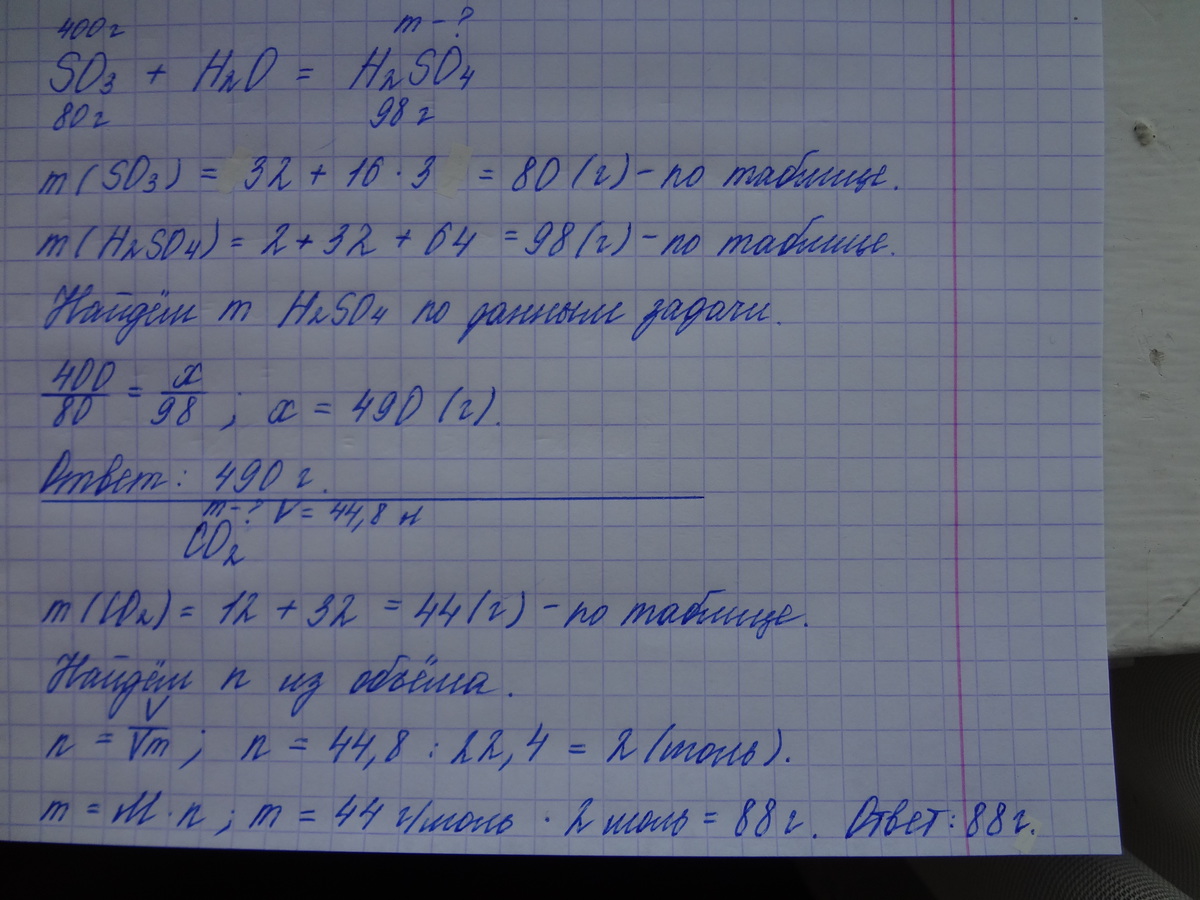 400г m - ?
SO₃ + H₂O = H₂SO₄
80г 98г
m(SO₃) = 32 + 16 · 3 = 80 (г) - по таблице.
m(H₂SO₄) = 2 + 32 + 64 = 98 (г) - по таблице.
Найдём m H₂SO₄ по данным задачи.
400/80 = x/98 ; x = 490 (г).
Ответ: 490 г.
m - ? V = 44,8 л
CO₂
m(CO₂) = 12 + 32 = 44 (г) - по таблице.
Найдём n из объёма.
n = V/Vm ; n = 44,8 : 22,4 = 2 (моль).
m = M · n ; m = 44 г/моль · 2 моль = 88 г. Ответ: 88 г.